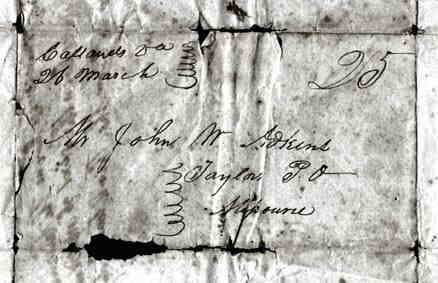 Callands Va
26 March
25
Mr John W Adkins
Taylor P O
Missourie